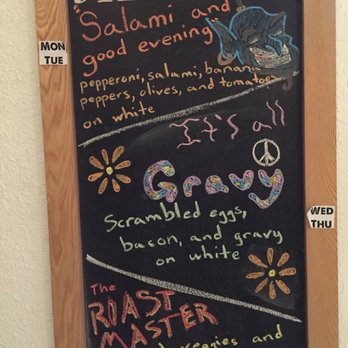 Salami and
good evening,
MON
TUE
pepperoni, salami, banana
peppers, olives, and tomatoes
on white
It's all
Gravy
WED
THU
Scrambled eggs,
bacon, and gravy
on white
The
ROAST
MASTER
veggies and